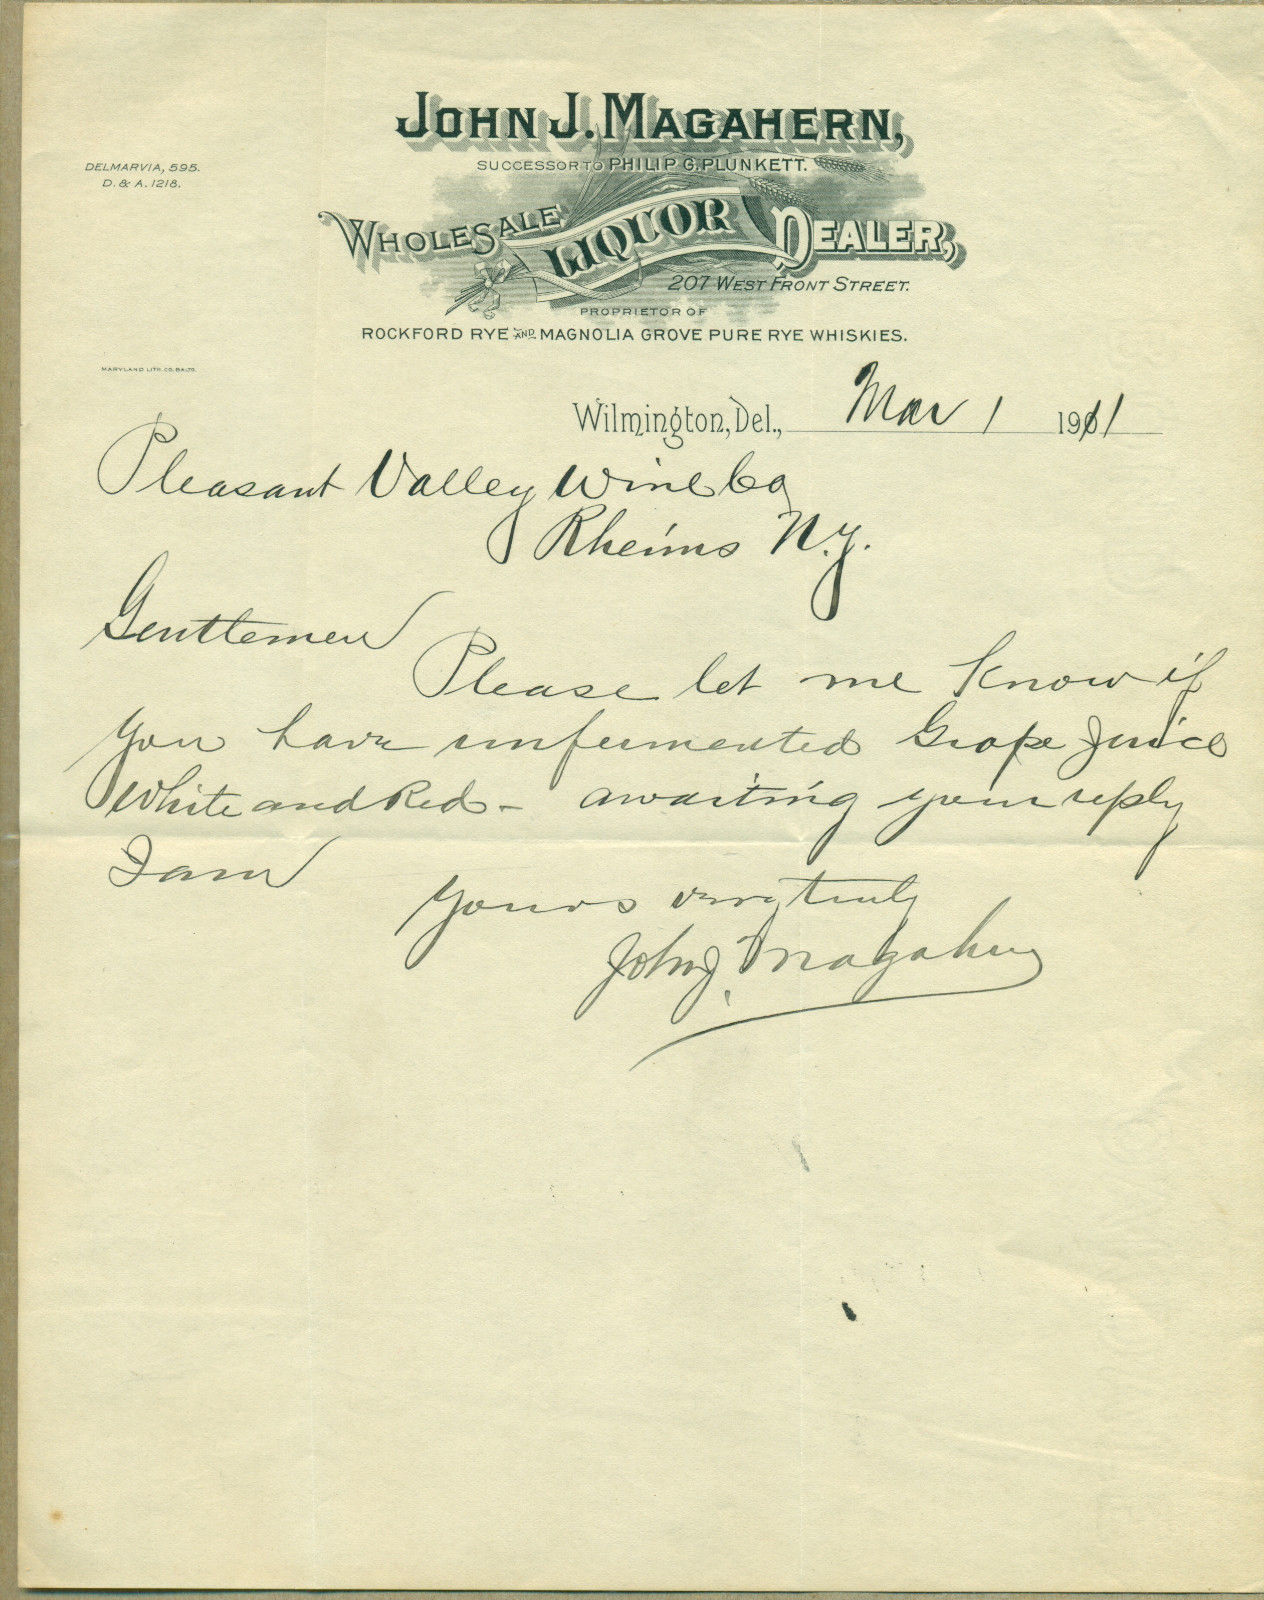 JOHN J. MAGAHERN,
SUCCESSOR TO PHILIP G. PLUNKETT.
DELMARVIA, 595.
D. & A. 1218.
WHOLESALE LIQUOR DEALER,
207 WEST FRONT STREET.
PROPRIETOR OF
ROCKFORD RYE AND MAGNOLIA GROVE PURE RYE WHISKIES.
MARYLAND LITH. CO. BALTO.
Wilmington, Del., Mar 1 1911
Pleasant Valley Wine Co
Rheims N.Y.
Gentlemen
Please let me know if
you have unfermented Grape Juice
White and Red - awaiting your reply
I am
Yours very truly
John J. Magahern